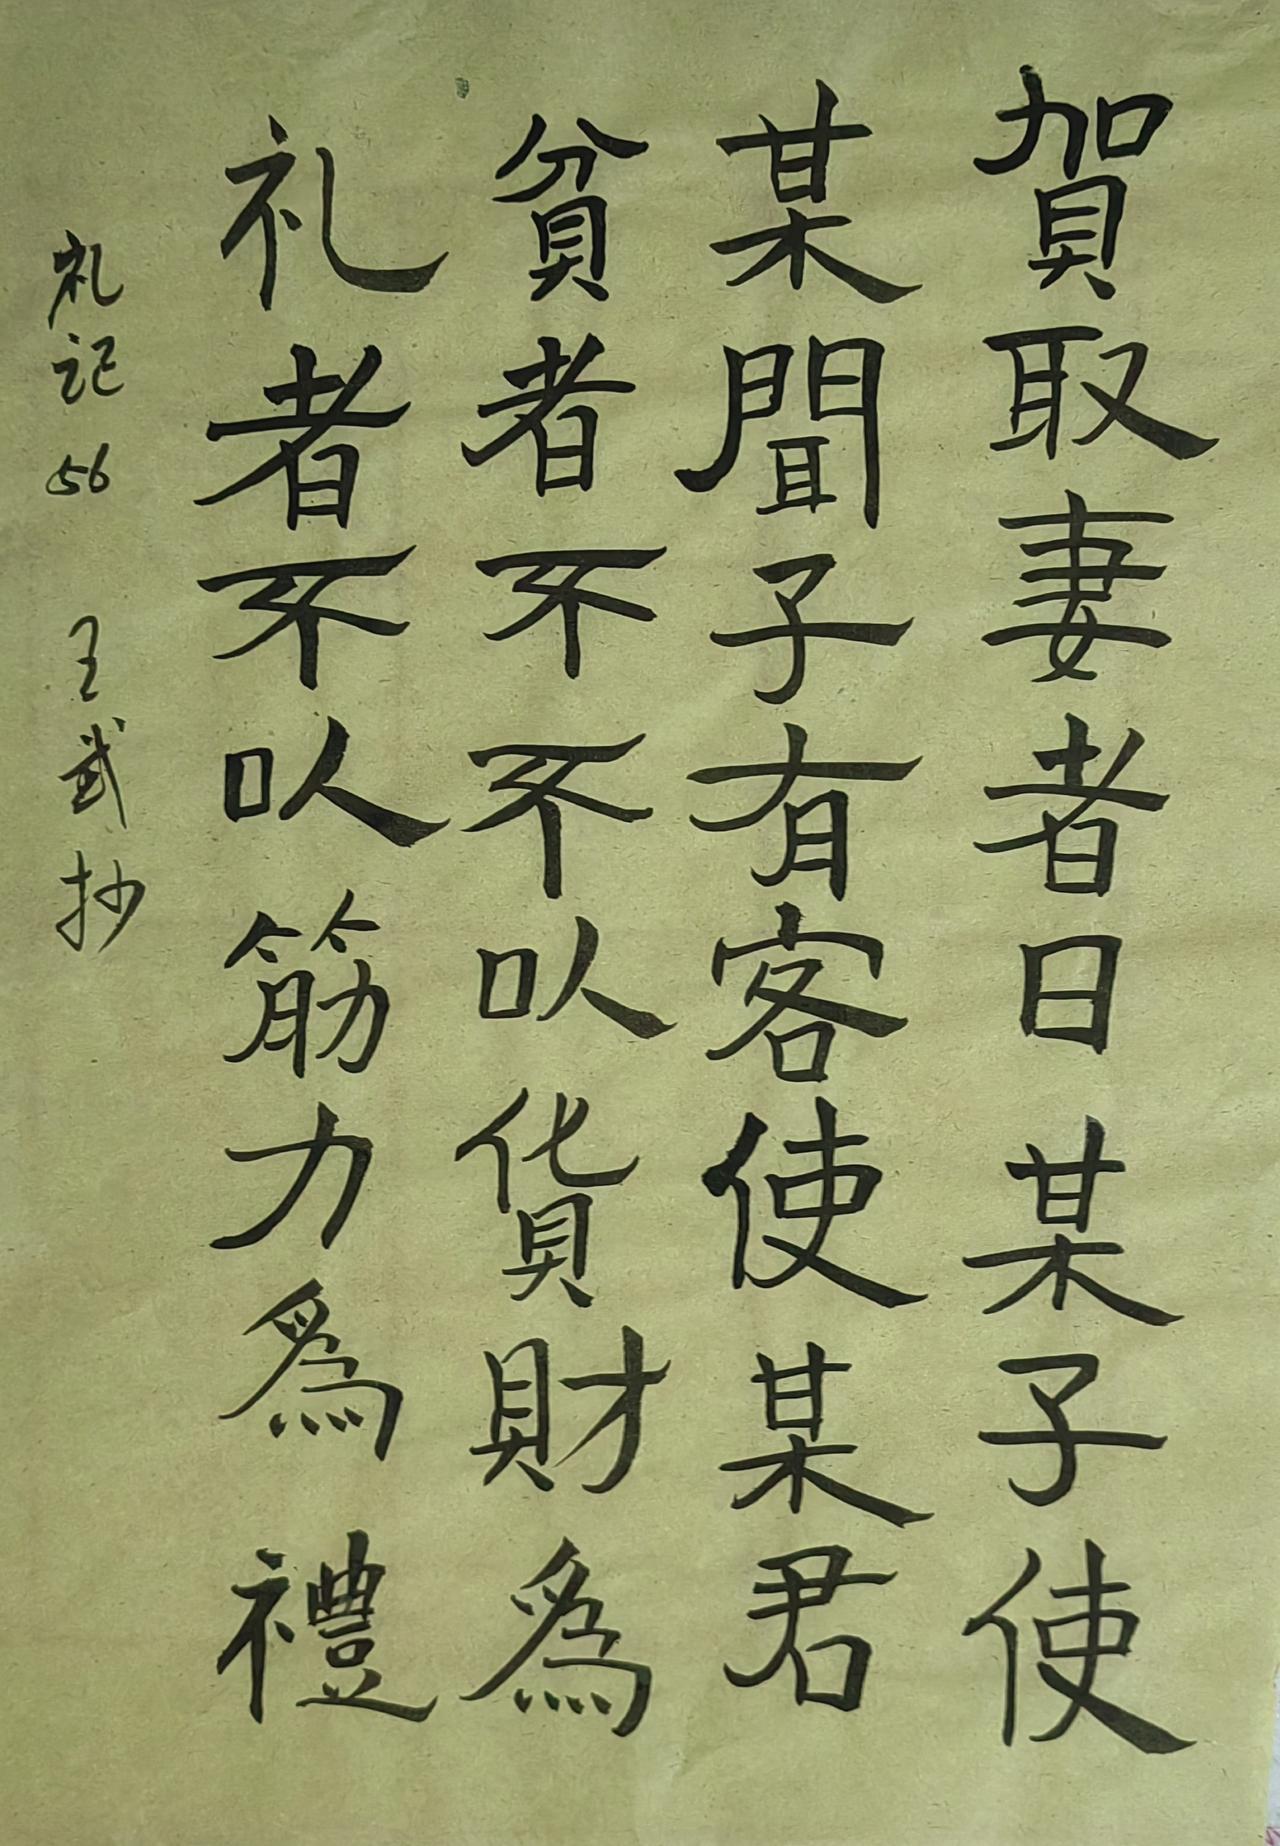 賀取妻者日某子使
某聞子有客使某君
貧者不不以貨財為
礼者不以筋力為禮
礼记56 王武抄